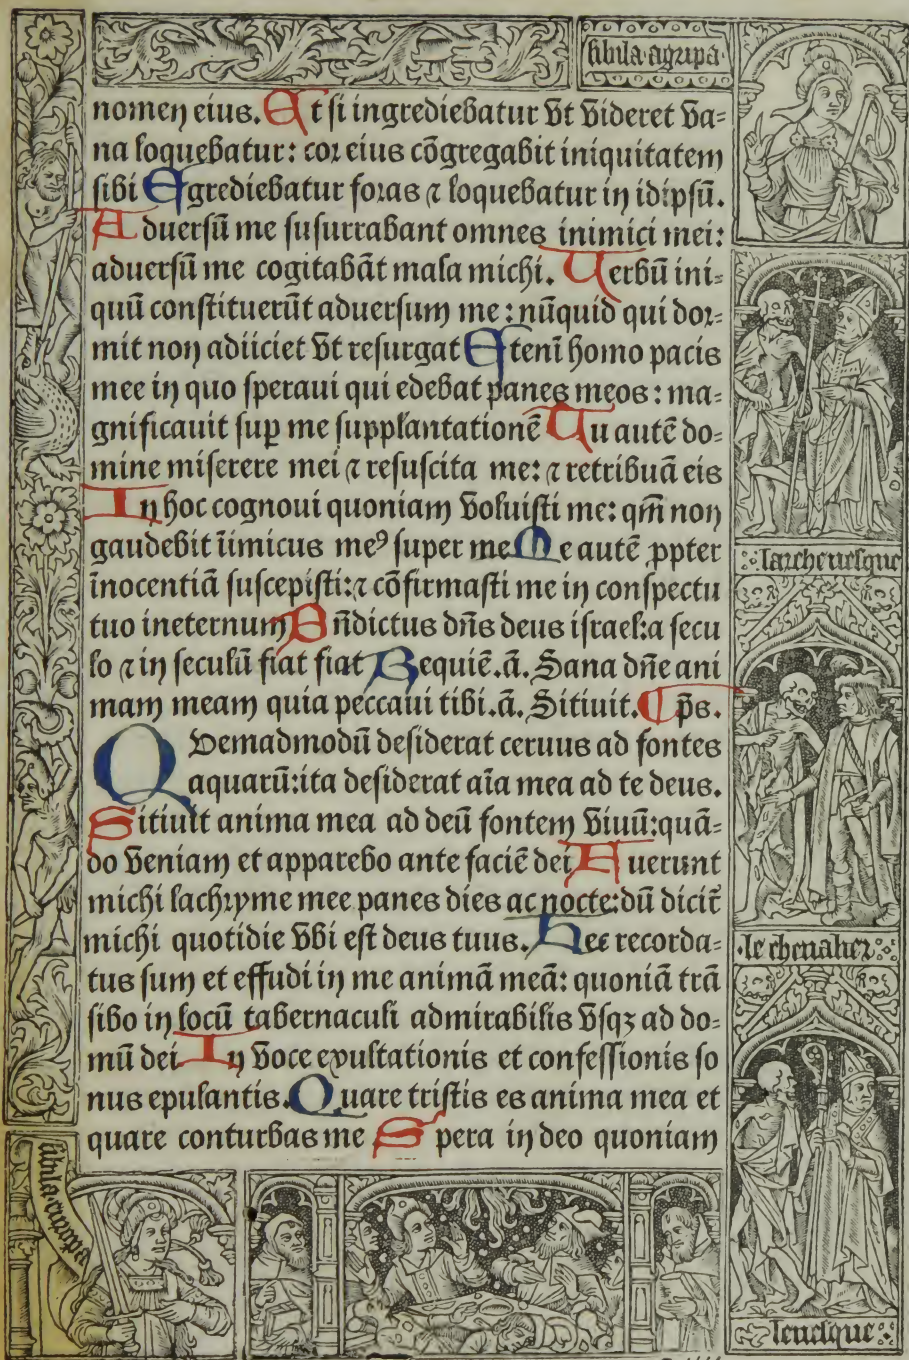 sibila agripa
nomen eius. Et si ingrediebatur vt videret va=
na loquebatur: cor eius cōgregabit iniquitatem
sibi Egrediebatur foras ⁊ loquebatur in idipsū.
Aduersū me susurrabant omnes inimici mei:
aduersū me cogitabāt mala michi. Uerbū ini=
quū constituerūt aduersum me: nūquid qui dor=
mit non adiiciet vt resurgat Etenī homo pacis
mee in quo speraui qui edebat panes meos: ma=
gnificauit sup̱ me supplantationē Tu autē do=
mine miserere mei ⁊ resuscita me: ⁊ retribuā eis
In hoc cognoui quoniam voluisti me: qm̄ non
gaudebit īimicus meꝰ super me Me autē ꝓpter
īnocentiā suscepisti: ⁊ cōfirmasti me in conspectu
tuo ineternum Bn̄dictus dn̄s deus israel: a secu
lo ⁊ in seculū fiat fiat Requiē. ā. Sana dn̄e ani
mam meam quia peccaui tibi. ā. Sitiuit. ¶ ps̄.
QUemadmodū desiderat ceruus ad fontes
aquarū: ita desiderat aīa mea ad te deus.
Sitiuit anima mea ad deū fontem viuū: quā=
do veniam et apparebo ante faciē dei Fuerunt
michi lachryme mee panes dies ac nocte: dū dicit̄
michi quotidie vbi est deus tuus. Hec recorda=
tus sum et effudi in me animā meā: quoniā trā
sibo in locū tabernaculi admirabilis vsqꝫ ad do=
mū dei In voce exultationis et confessionis so
nus epulantis. Quare tristis es anima mea et
quare conturbas me Spera in deo quoniam
larcheuesque
le cheualier
leuesque